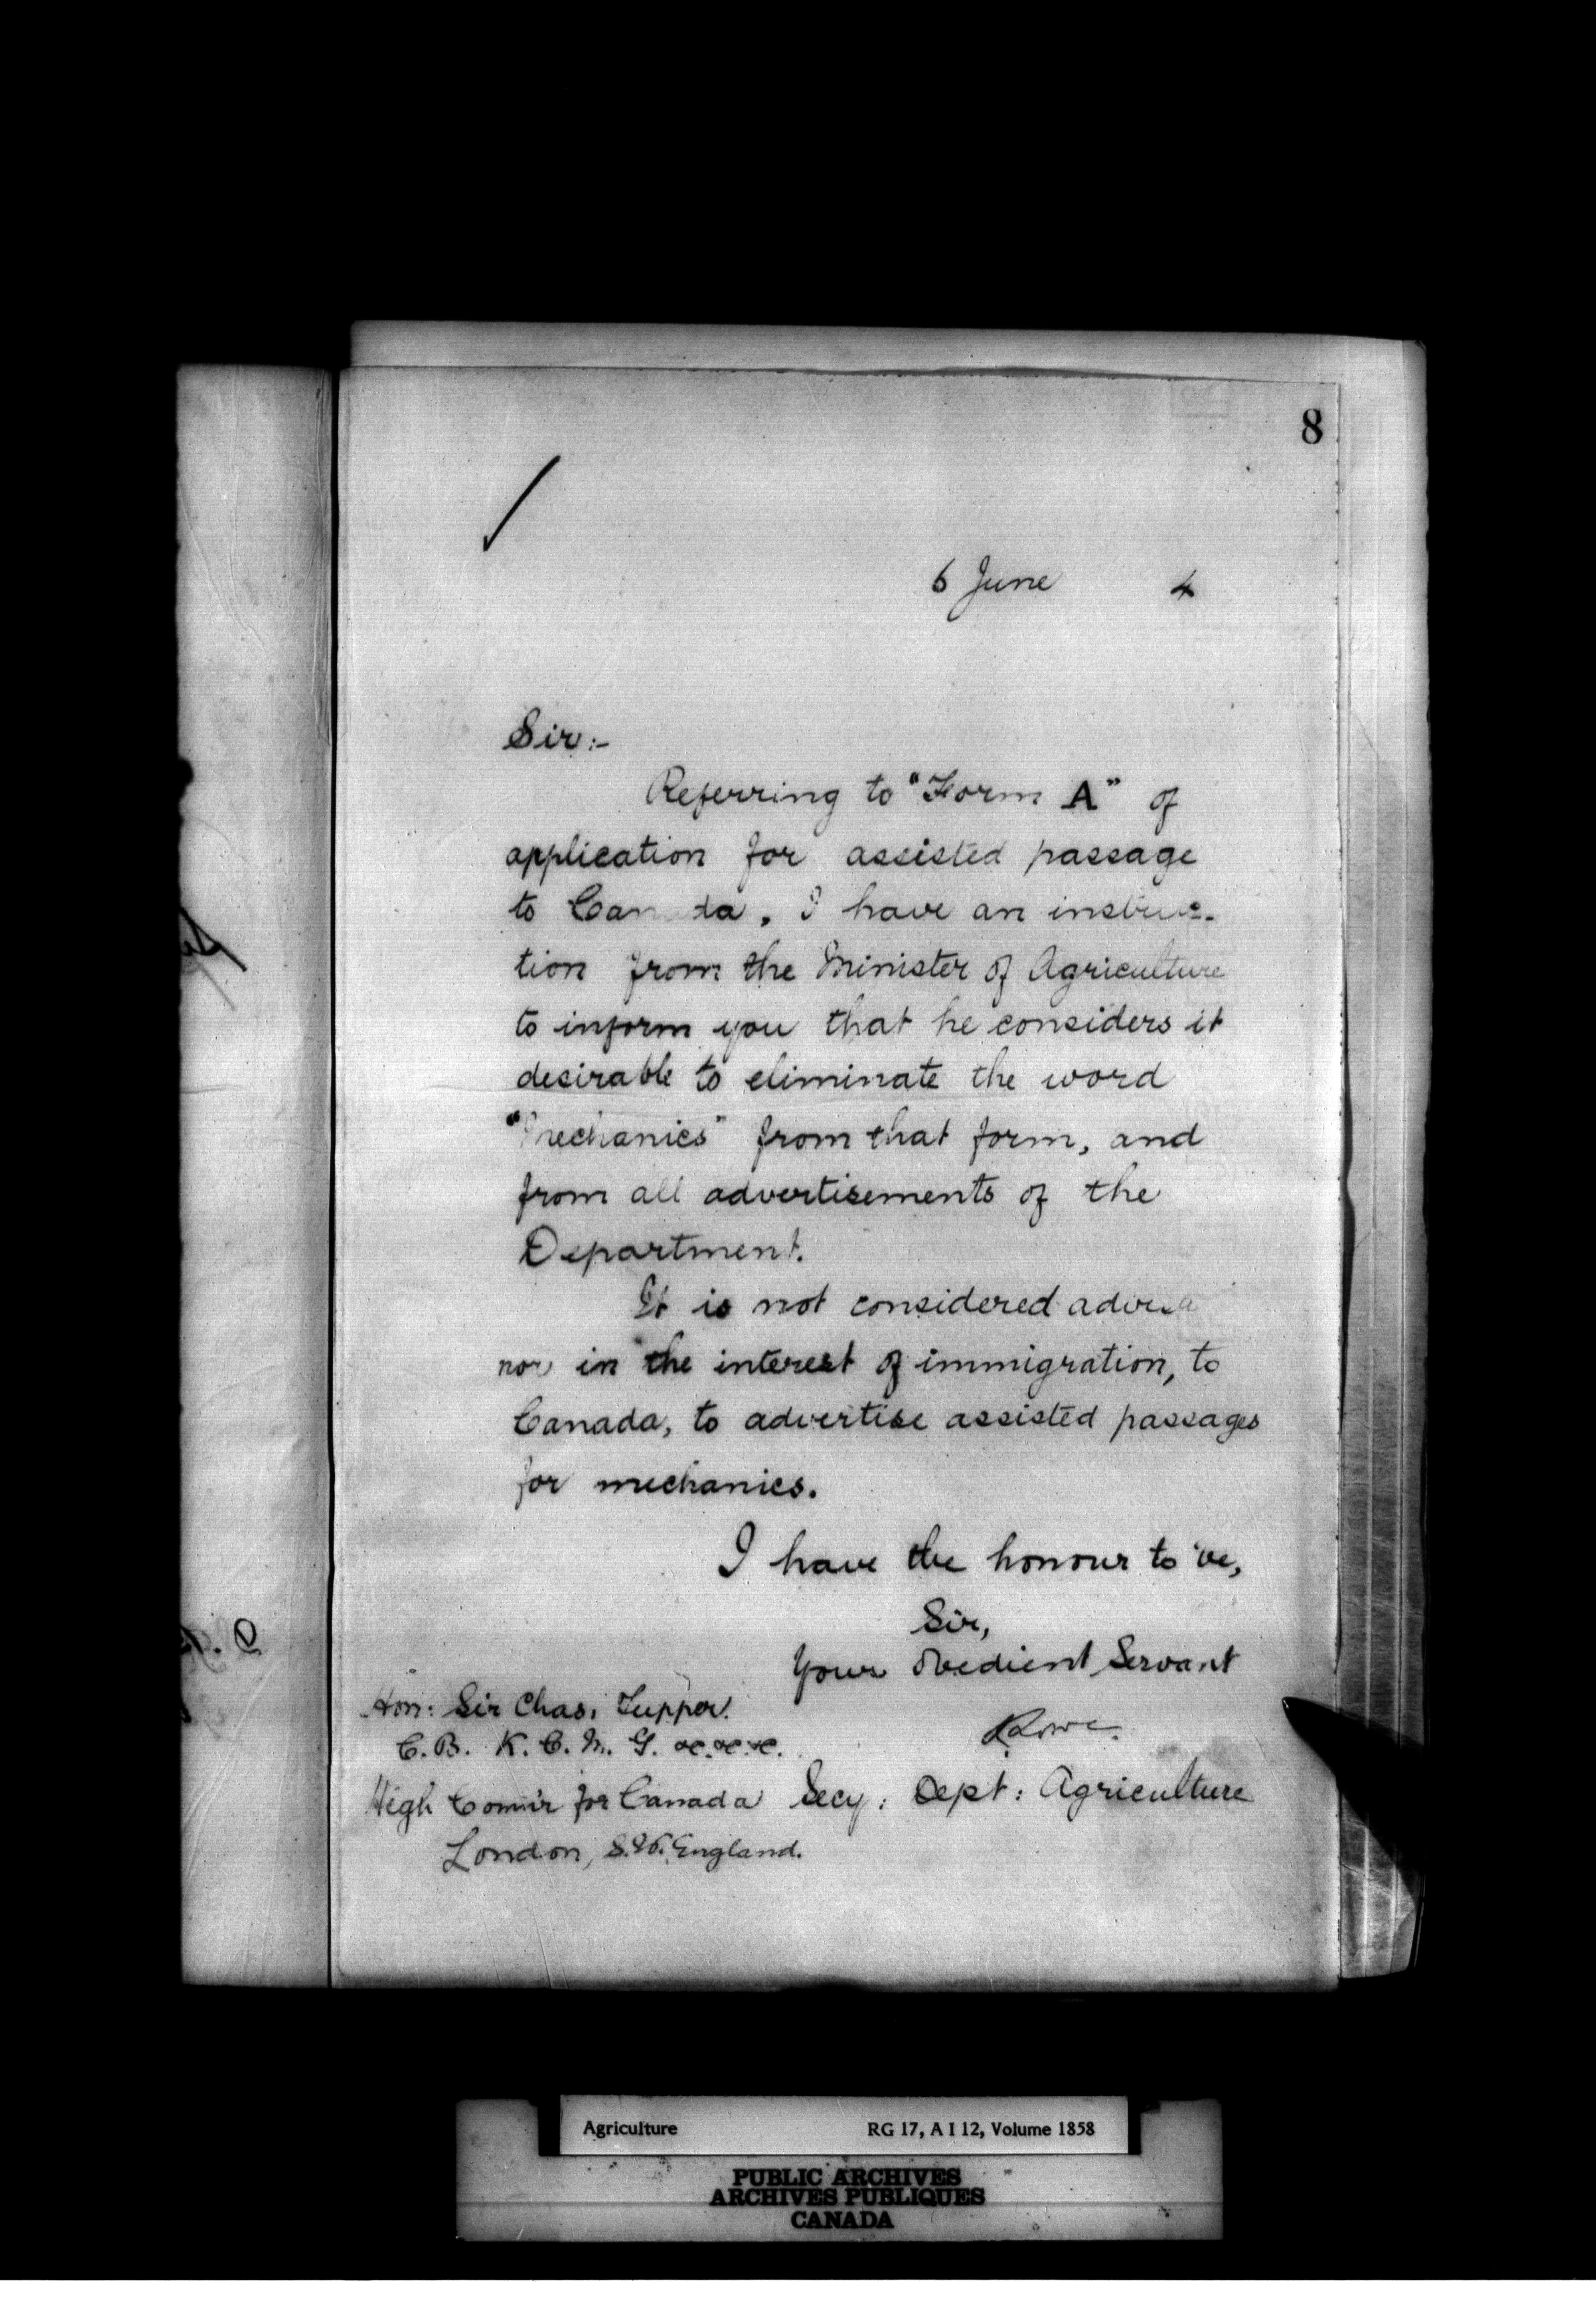 8
6 June 4
Sir:-
Referring to "Form A" of
application for assisted passage
to Canada, I have an instruc-
tion from the Minister of Agriculture
to inform you that he considers it
desirable to eliminate the word
"Mechanics" from that form, and
from all advertisements of the
Department.
It is not considered
nor in the interest of immigration, to
Canada, to advertise assisted passages
for mechanics.
I have the honour to be,
Sir,
Your Obedient Servant
Lowe
Hon: Sir Chas. Tupper.
C.B. K.C.M.G. &c.&c.&c.
High Comm'r for Canada Secy: Dept: Agriculture
London, S.W. England.
Agriculture RG 17, A I 12, Volume 1858
PUBLIC ARCHIVES
ARCHIVES PUBLIQUES
CANADA